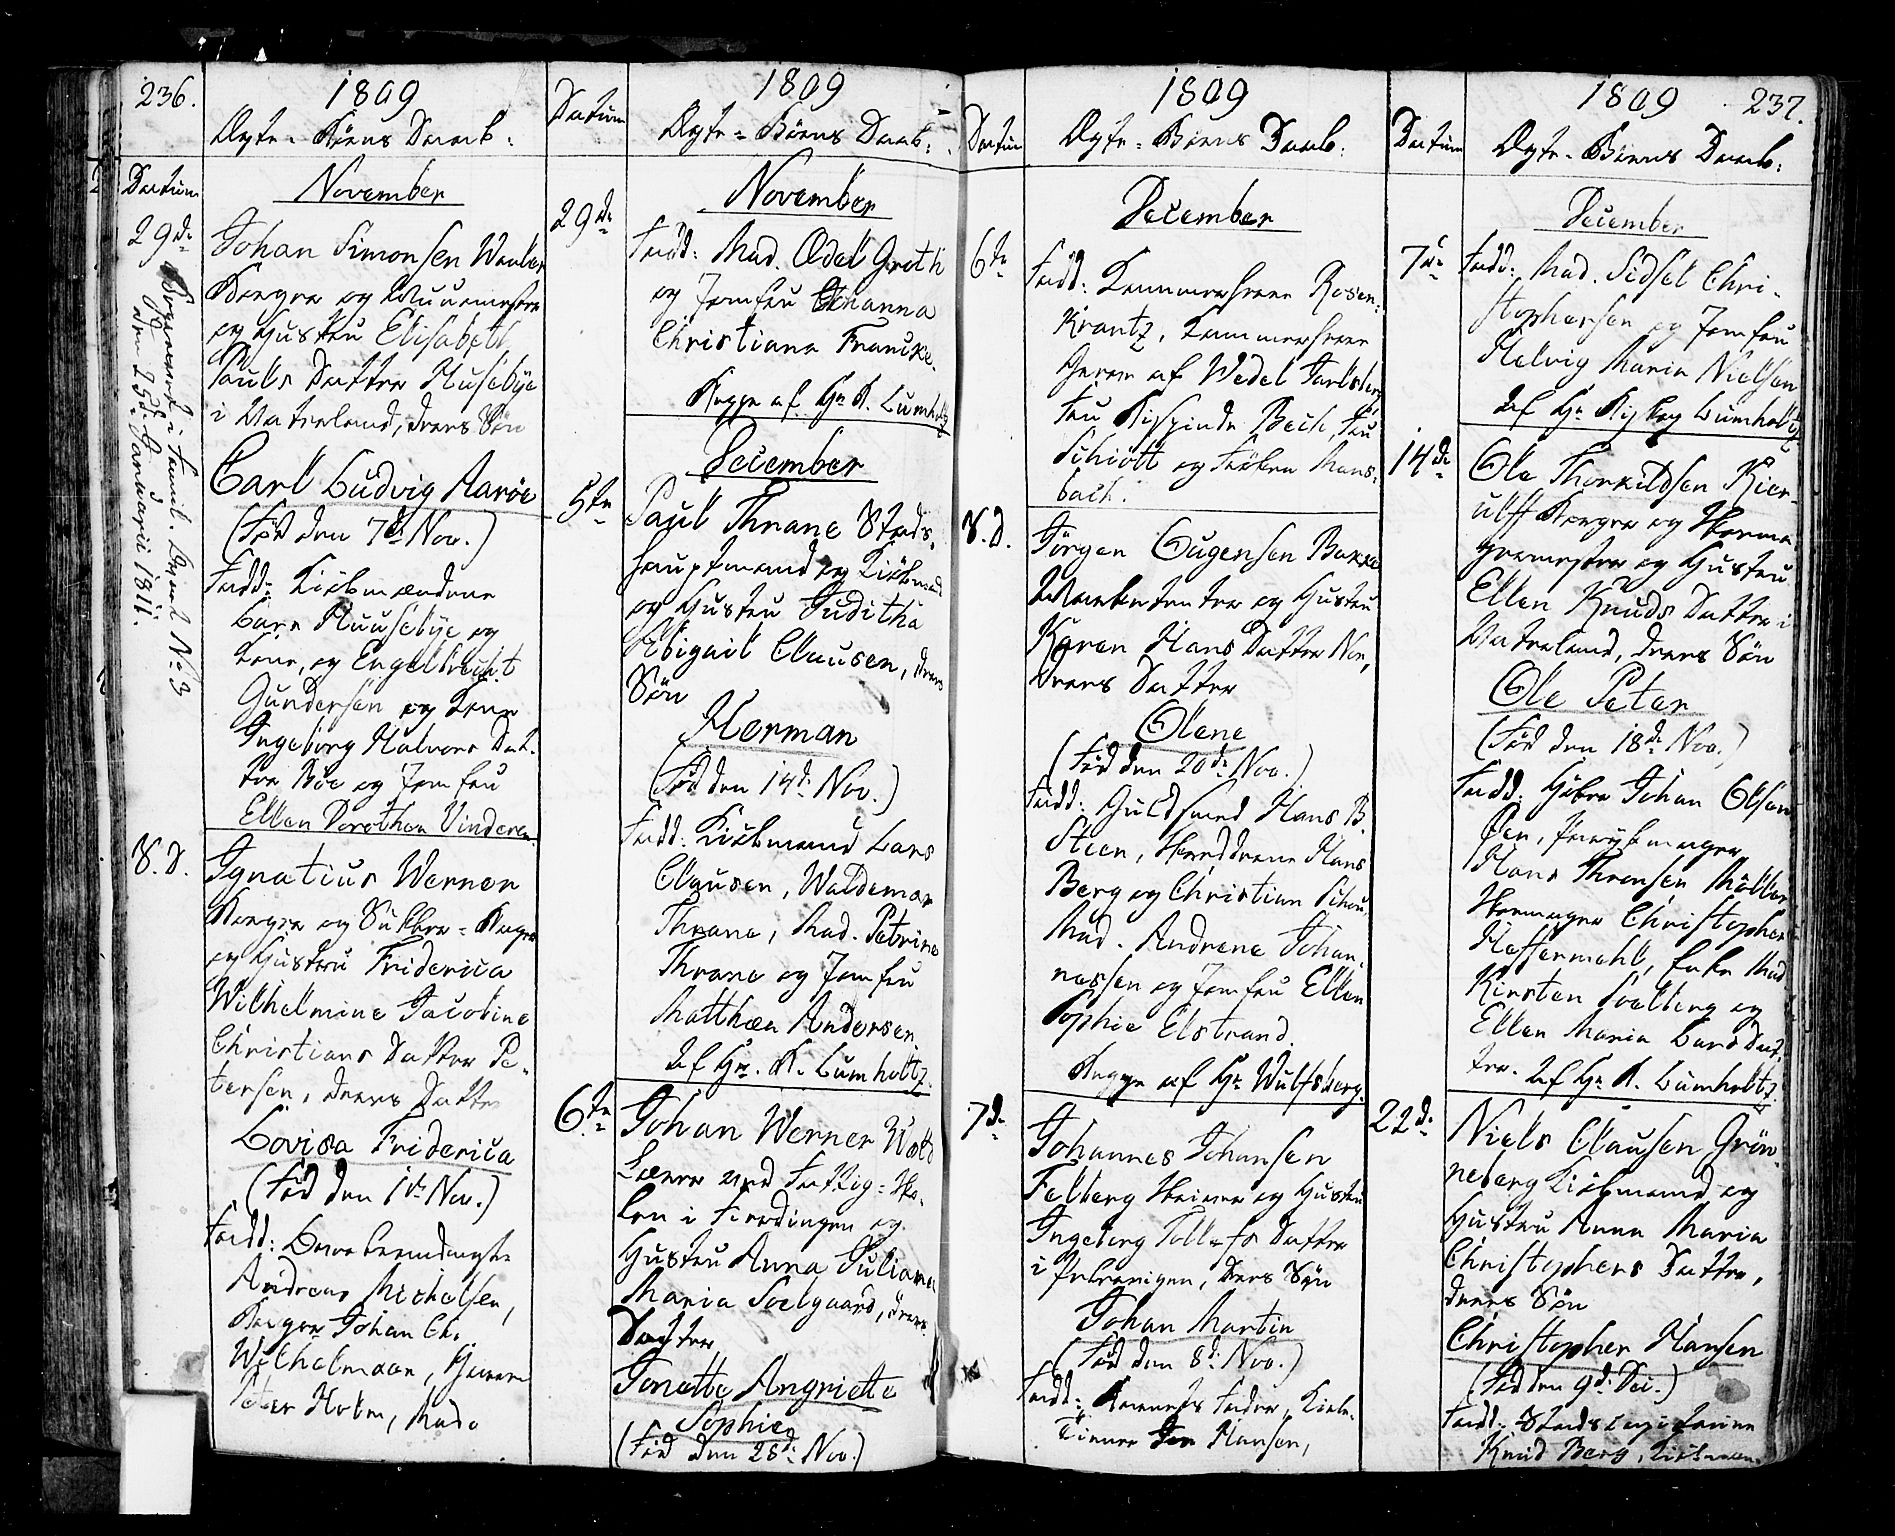 236.
1809
Ægte-Børns Daab.
Datum
November
29de
Johan Simonsen
Borger og
og Hustru Elisabeth
Pauls Datter Husebÿe
i Vaterland, deres Søn
Carl Ludvig Aarøe
(Fød den 7de Nov.)
Fadd: Kiöbmændene
Lars Huusebÿe og
Kone, og Engelbrecht
Gundersen og Kone
Ingeborg Halvors Dat-
ter Bøe og Jomfru
Ellen Dorothea Vinderen.
i Famil. No 3
den 25de Januarii 1811.
S. D.
Ignatius Werner
Borger og Sukker-Bager
og Hustru Friderica
Wilhelmine Jacobine
Christians Datter Pe-
tersen, deres Datter
Lovisa Friderica
(Fød den 1de Nov.)
Fadd:
Andreas Michelsen,
Borger Johan Ch.
Peter Holm, Mad.
Datum
1809
Ægte-Børns Daab.
November
29de
Fadd: Mad. Edel Groth
og Jomfru Johanna
Christiana Francke.
Begge af Hr. K. Lumholtz
December
5te
Paul Thrane Stads-
hauptmand og Kiöbmand
og Hustru Juditha
Abigail Clausen, deres
Søn
Herman
(Fød den 14de Nov.)
Fadd: Kiöbmand Lars
Clausen, Waldemar
Thrane, Mad. Petrine
Thrane og Jomfru
Matthæa Andersen.
Af Hr. K. Lumholtz.
6te
Johan Werner
Lærer ved Fattig-Sko-
len i Fierdingen og
Hustru Anna Juliana
Maria Soelgaard, deres
Datter
Jonette Angriette
Sophie
(Fød den 28de Nov.)
Datum
1809
Ægte-Børns Daab.
December
6te
Fadd: Kammerherre Rosen-
krantz, Kammerherre
Greve af Wedel Jarlsberg,
Fru Beck, Fru
Schiøtt og Frøken Mans-
bach.
S. D.
Jørgen Gugensen
og Hustru
Karen Hans Datter
deres Datter
Olene
(Fød den 20de Nov.)
Fadd: Guldsmed Hans B.
Steen, Hans
Berg og Christian
Mad. Andrene Johan-
nessen og Jomfru Ellen
Sophie Elstrand.
Begge af Hr. Wulfsberg.
7de
Johannes Johansen
Felberg og Hustru
Ingeborg Tollefs Datter
i deres Søn
Johan Martin
(Fød den 8de Nov.)
Fadd: Barnets Fader,
Hansen,
Datum
1809
237.
Ægte-Børns Daab.
December
7de
Fadd: Mad. Sidsel Chri-
stophersen og Jomfru
Helvig Maria Nielsen
Af Hr. Res. Cap. Lumholtz
14de
Ole Thorkildsen Kier-
ulff Borger og Skoma-
germester og Hustru
Ellen Knuds Datter i
Vaterland, deres Søn
Ole Peter
(Fød den 18de Nov.)
Fadd: Johan Olsen
Øen, Parykmager
Hans Thronsen Møller
Skomager Christopher
Heffermehl, Enke Mad.
Kirsten Soelberg og
Ellen Maria Lars Dat-
ter. Af Hr. K. Lumholtz.
22de
Niels Clausen Grøn-
neberg Kiöbmand og
Hustru Anna Maria
Christophers Datter,
deres Søn
Christopher Hansen
(Fød den 9de Dec.)
Fadd: Stads
Knud Berg, Kiöbmand